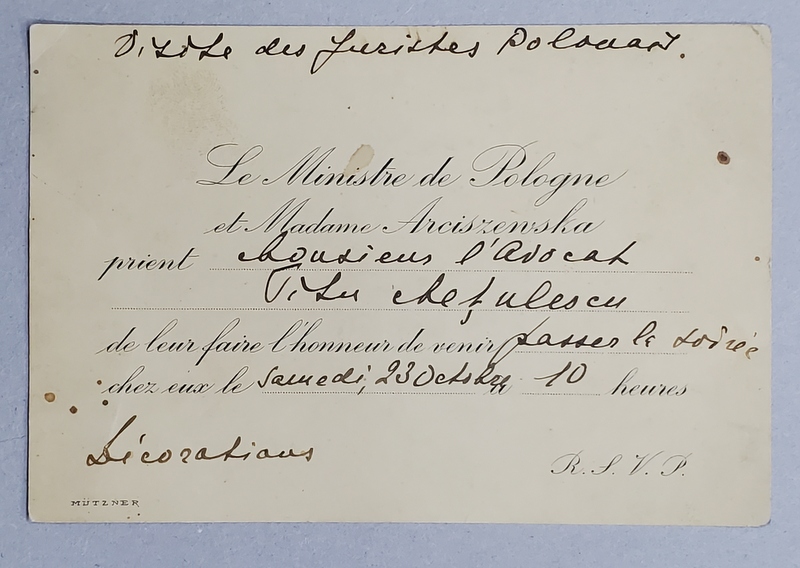 Visite des Juristes Polonais.
Le Ministre de Pologne
et Madame Arciszewska
prient Monsieur l'Avocat
Titu
de leur faire l'honneur de venir passer la soirée
chez eux le Samedi, 23 Octobre à 10 heures
Décorations
R. S. V. P.
MÜTZNER